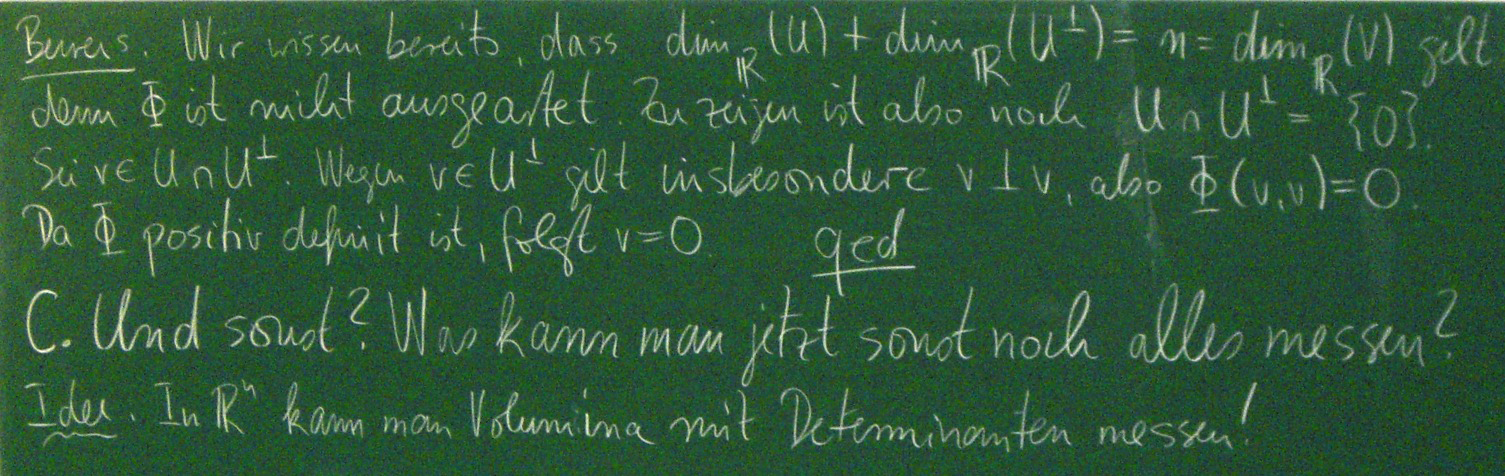 Beweis. Wir wissen bereits, dass dim_ℝ(U) + dim_ℝ(U^⊥) = n = dim_ℝ(V) gilt
denn Φ ist nicht ausgeartet. Zu zeigen ist also noch U ∩ U^⊥ = {0}.
Sei v ∈ U ∩ U^⊥. Wegen v ∈ U^⊥ gilt insbesondere v ⊥ v, also Φ(v,v)=0.
Da Φ positiv definit ist, folgt v=0. qed
C. Und sonst? Was kann man jetzt sonst noch alles messen?
Idee. In ℝ^n kann man Volumina mit Determinanten messen!